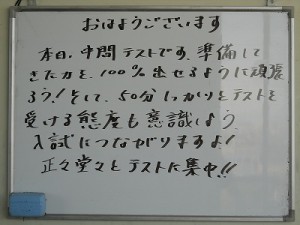 おはようございます
本日、中間テストです。準備して
きた力を、100%出せるように頑張
ろう！そして、50分しっかりとテストを
受ける態度も意識しよう。
入試につながりますよ！
正々堂々とテストに集中!!